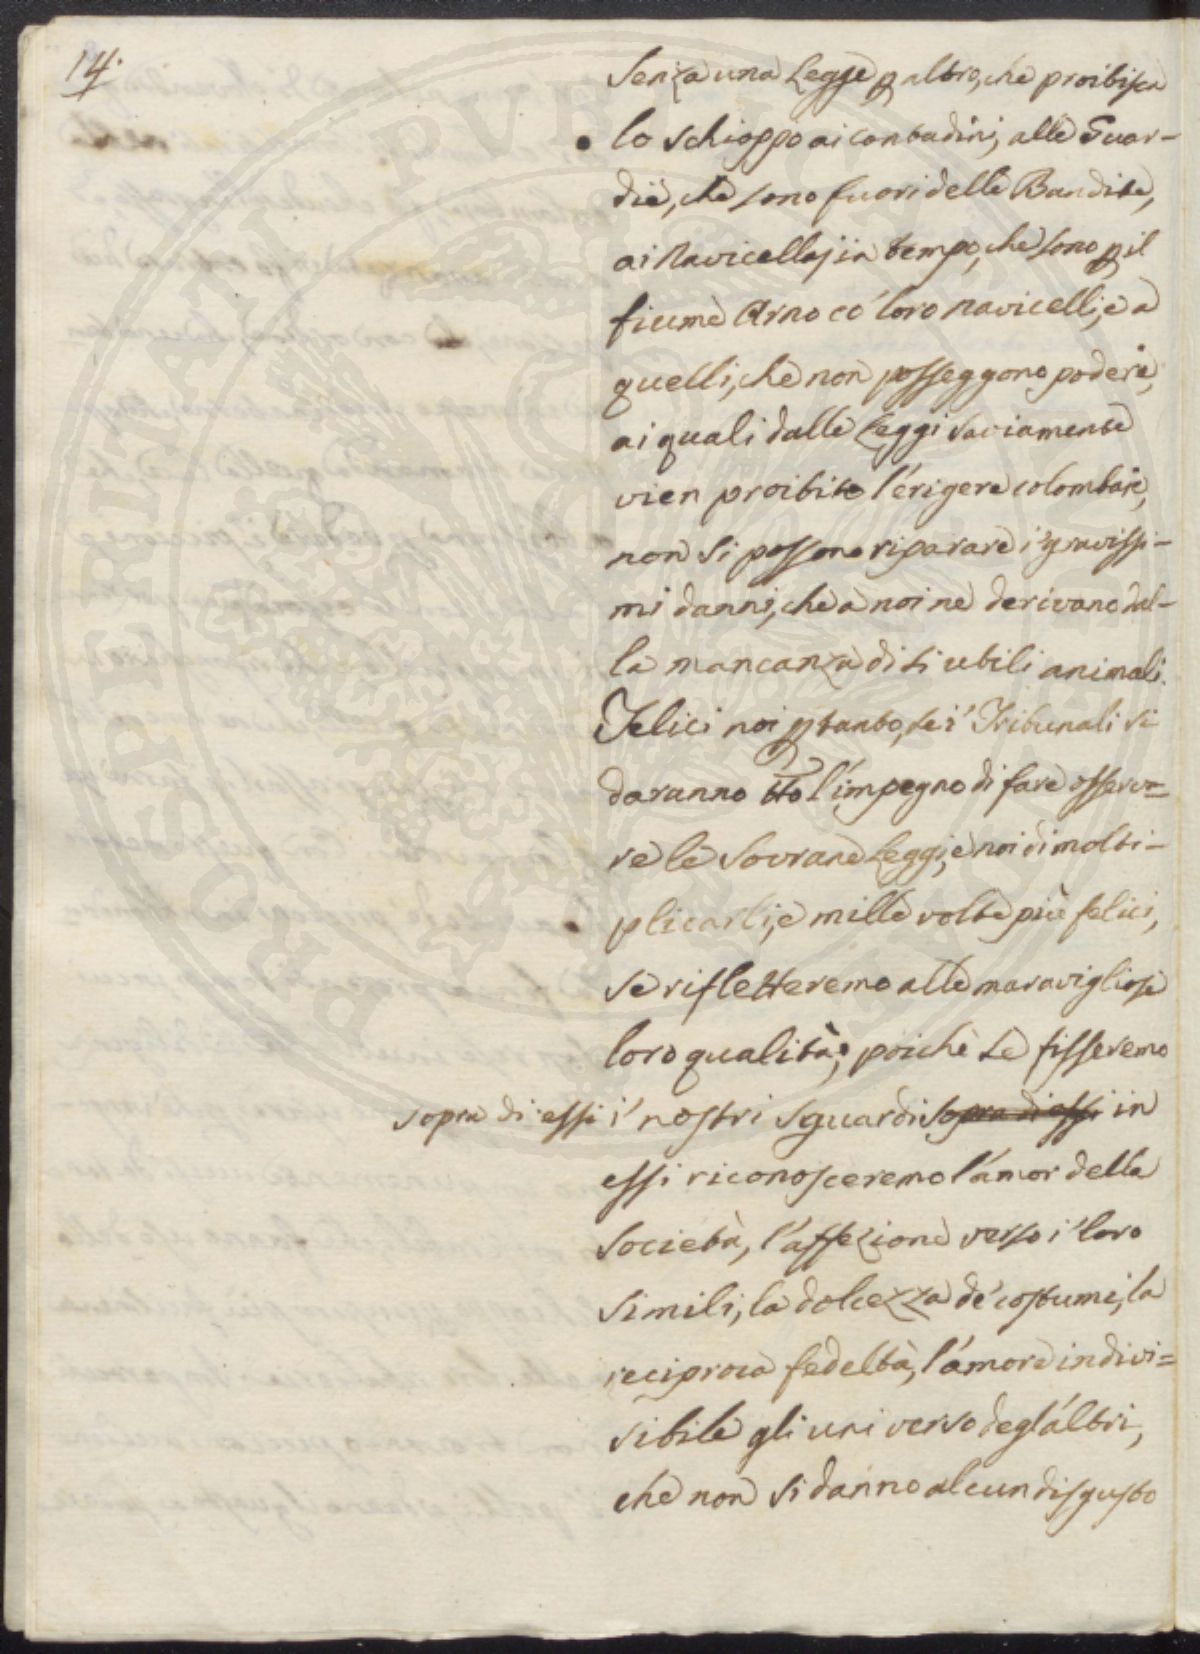 14.
Senza una Legge p altro, che proibisca
lo schioppo ai contadini, alle Guar-
die, che sono fuori delle Bandite,
ai Navicellaj in tempo, che sono p il
fiume Arno co' loro navicelli, e a
quelli, che non posseggono podere,
ai quali dalle Leggi saviamente
vien proibito l'erigere colombaje,
non si possono riparare i' gravissi-
mi danni, che a noi ne derivano dal-
la mancanza di sì utili animali.
Felici noi ptanto, se i' Tribunali si
daranno tto l'impegno di fare osserva=
re le Sovrane Leggi, e noi di molti-
plicarli, e mille volte più felici,
se rifletteremo alle maravigliose
loro qualità; poichè se fisseremo
sopra di essi i' nostri sguardi sopra di essi in
essi riconosceremo l'amor della
Società, l'affezione verso i' loro
simili, la dolcezza de' costumi, la
reciproca fedeltà, l'amore indivi=
sibile gli uni verso degl'altri,
che non si danno alcun disgusto
PROSPERITATI PVBLICAE